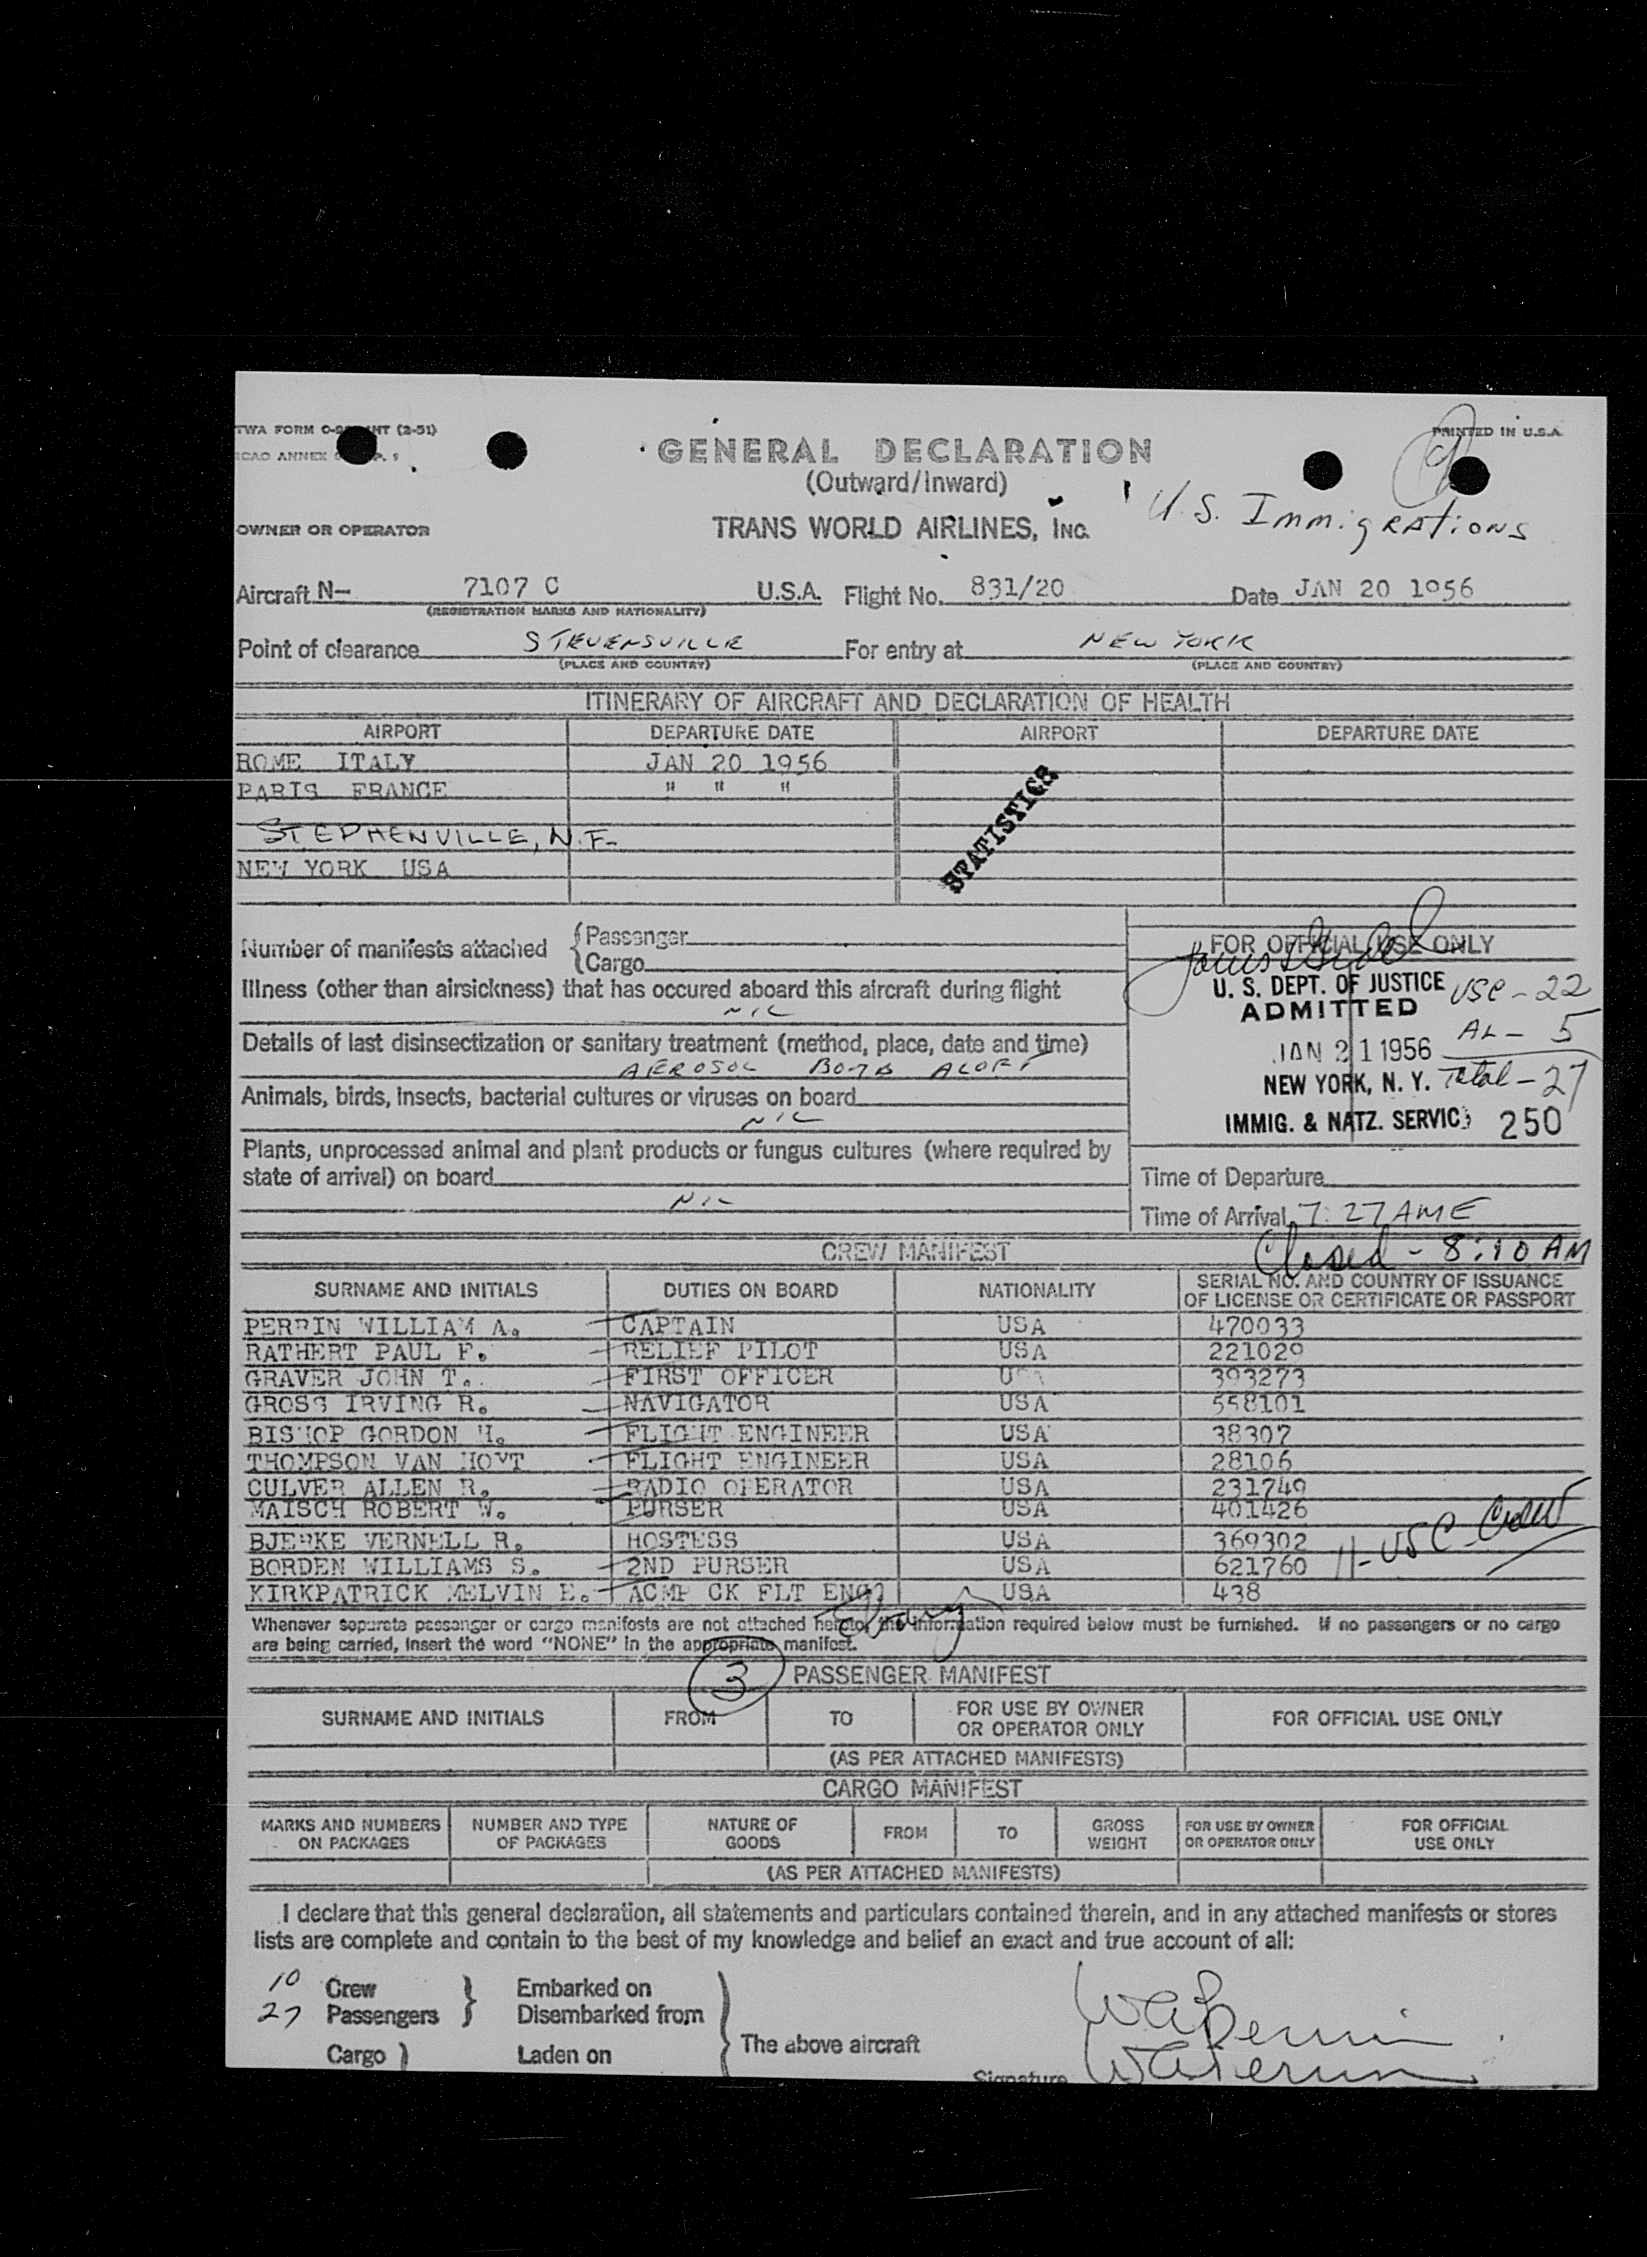 TWA FORM O- NT (2-51)
PRINTED IN U.S.A.
ICAO ANNEX P. 9
GENERAL DECLARATION
(Outward/Inward)
U.S. Immigrations
OWNER OR OPERATOR TRANS WORLD AIRLINES, Inc.
Aircraft N- 7107 C U.S.A. Flight No. 831/20 Date JAN 20 1956
(REGISTRATION MARKS AND NATIONALITY)
Point of clearance STEVENSVILLE For entry at NEW YORK
(PLACE AND COUNTRY) (PLACE AND COUNTRY)
ITINERARY OF AIRCRAFT AND DECLARATION OF HEALTH
AIRPORT DEPARTURE DATE AIRPORT DEPARTURE DATE
ROME ITALY JAN 20 1956
PARIS FRANCE " " "
STATISTICS
STEPHENVILLE, N.F.
NEW YORK USA
Number of manifests attached {Passenger
{Cargo
FOR OFFICIAL USE ONLY
Illness (other than airsickness) that has occured aboard this aircraft during flight
NIL
U. S. DEPT. OF JUSTICE USC - 22
ADMITTED
AL - 5
Details of last disinsectization or sanitary treatment (method, place, date and time)
AEROSOL BOMB ALOFT
JAN 21 1956
NEW YORK, N. Y. Total - 27
Animals, birds, insects, bacterial cultures or viruses on board
NIL
IMMIG. & NATZ. SERVIC 250
Plants, unprocessed animal and plant products or fungus cultures (where required by
state of arrival) on board
NIL
Time of Departure
Time of Arrival 7:27 AME
Closed - 8:10 AM
CREW MANIFEST
SURNAME AND INITIALS DUTIES ON BOARD NATIONALITY SERIAL NO. AND COUNTRY OF ISSUANCE
OF LICENSE OR CERTIFICATE OR PASSPORT
PERRIN WILLIAM A. CAPTAIN USA 470033
RATHERT PAUL F. RELIEF PILOT USA 221029
GRAVER JOHN T. FIRST OFFICER USA 393273
GROSS IRVING R. NAVIGATOR USA 558101
BISHOP GORDON H. FLIGHT ENGINEER USA 38307
THOMPSON VAN HOYT FLIGHT ENGINEER USA 28106
CULVER ALLEN R. RADIO OPERATOR USA 231749
MAISCH ROBERT W. PURSER USA 401426
BJERKE VERNELL R. HOSTESS USA 369302
11- USC Crew
BORDEN WILLIAMS S. 2ND PURSER USA 621760
KIRKPATRICK MELVIN E. ACMP CK FLT ENG USA 438
Whenever separate passenger or cargo manifests are not attached hereto, the information required below must be furnished. If no passengers or no cargo
are being carried, insert the word "NONE" in the appropriate manifest.
3 PASSENGER MANIFEST
SURNAME AND INITIALS FROM TO FOR USE BY OWNER
OR OPERATOR ONLY FOR OFFICIAL USE ONLY
(AS PER ATTACHED MANIFESTS)
CARGO MANIFEST
MARKS AND NUMBERS
ON PACKAGES NUMBER AND TYPE
OF PACKAGES NATURE OF
GOODS FROM TO GROSS
WEIGHT FOR USE BY OWNER
OR OPERATOR ONLY FOR OFFICIAL
USE ONLY
(AS PER ATTACHED MANIFESTS)
I declare that this general declaration, all statements and particulars contained therein, and in any attached manifests or stores
lists are complete and contain to the best of my knowledge and belief an exact and true account of all:
10 Crew } Embarked on
27 Passengers } Disembarked from
Cargo } Laden on
The above aircraft
WAPerrin
Signature WAPerrin